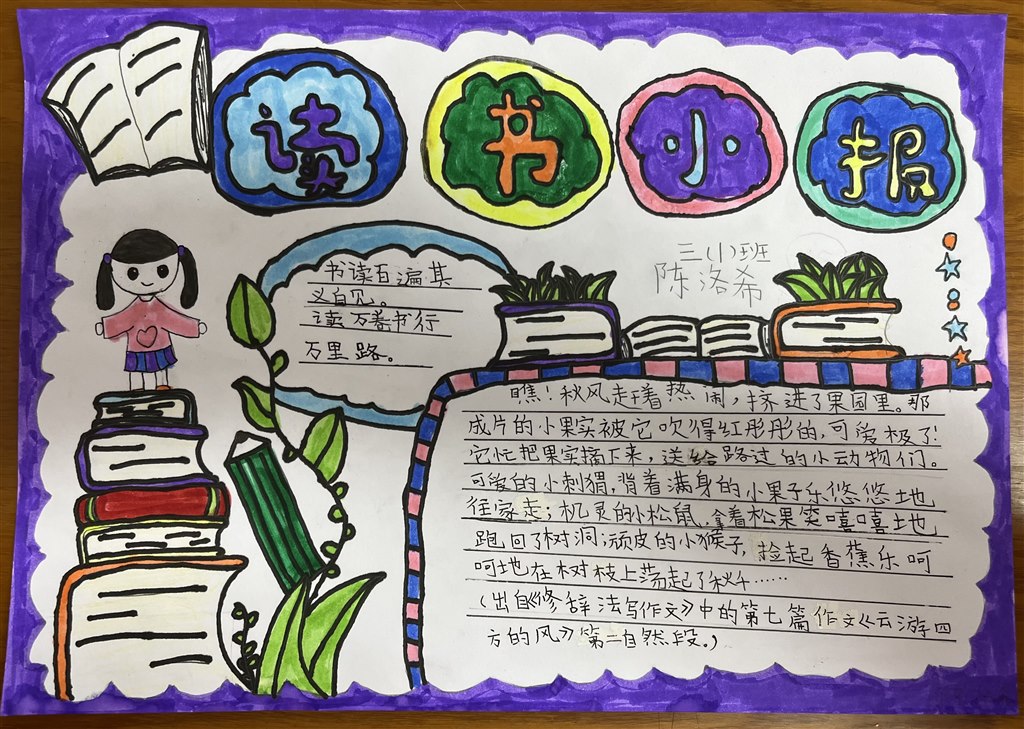 读书小报
三(1)班
陈洛希
书读百遍其
义自见。
读万卷书行
万里路。
瞧！秋风走着热闹，挤进了果园里。那
成片的小果实被它吹得红彤彤的，可爱极了！
它忙把果实摘下来，送给路过的小动物们。
可爱的小刺猬，背着满身的小果子乐悠悠地
往家走；机灵的小松鼠，拿着松果笑嘻嘻地
跑回了树洞；顽皮的小猴子，捡起香蕉乐呵
呵地在树枝上荡起了秋千……
（出自《修辞法写作文》中的第七篇作文《云游四
方的风》第二自然段。）